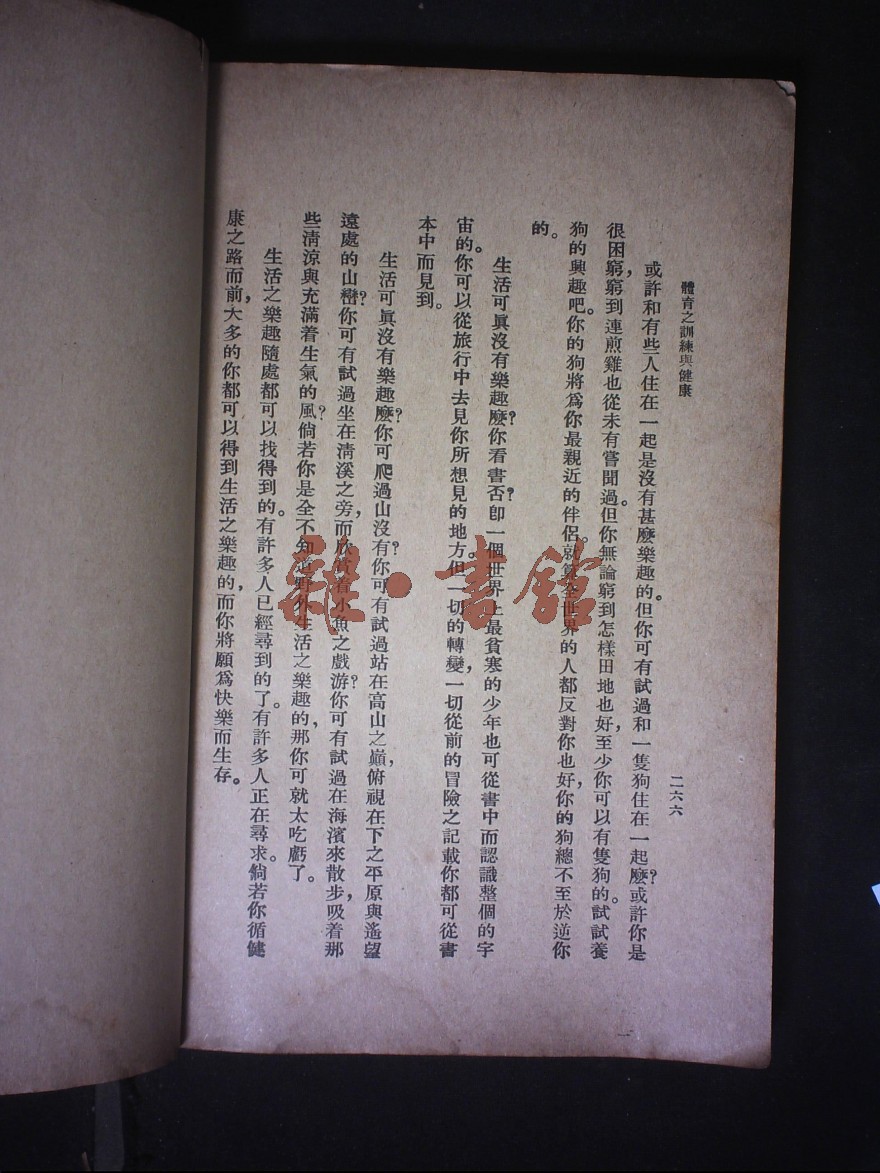 體育之訓練與健康
二六六
或許和有些人住在一起是沒有甚麼樂趣的。但你可有試過和一隻狗住在一起麼?或許你是
很困窮,窮到連煎雞也從未有嘗聞過。但你無論窮到怎樣田地也好,至少你可以有隻狗的。試試養
狗的興趣吧。你的狗將爲你最親近的伴侶。就算全世界的人都反對你也好,你的狗總不至於逆你
的。
生活可眞沒有樂趣麼?你看書否?卽一個世界上最貧寒的少年也可從書中而認識整個的宇
宙的。你可以從旅行中去見你所想見的地方。但一切的轉變,一切從前的冒險之記載你都可從書
本中而見到。
生活可眞沒有樂趣麼?你可爬過山沒有?你可有試過站在高山之巔,俯視在下之平原與遙望
遠處的山巒?你可有試過坐在淸溪之旁,而欣賞着小魚之戲游?你可有試過在海濱來散步,吸着那
些淸涼與充滿着生氣的風?倘若你是全不知道野外生活之樂趣的,那你可就太吃虧了。
生活之樂趣隨處都可以找得到的。有許多人已經尋到的了。有許多人正在尋求。倘若你循健
康之路而前,大多的你都可以得到生活之樂趣的,而你將願爲快樂而生存。
雜·書館